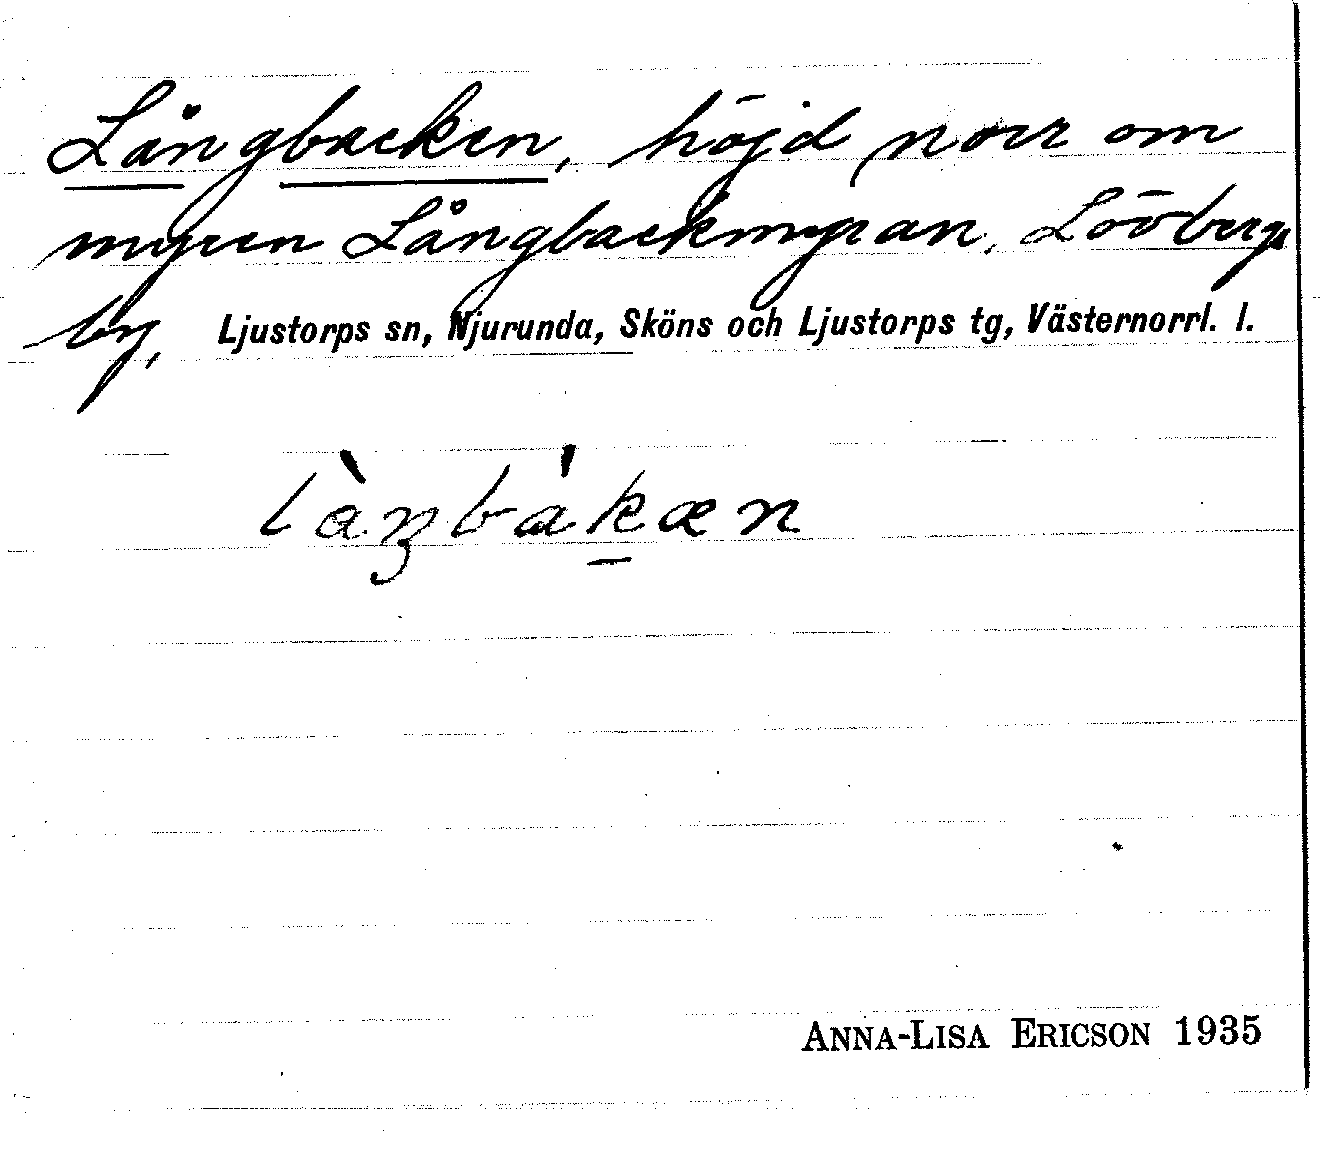 Långbacken, höjd norr om
myren Långbackmyran, Lövbergs
by, Ljustorps sn, Njurunda, Sköns och Ljustorps tg, Västernorrl. l.
làŋbákæn
ANNA-LISA ERICSON 1935